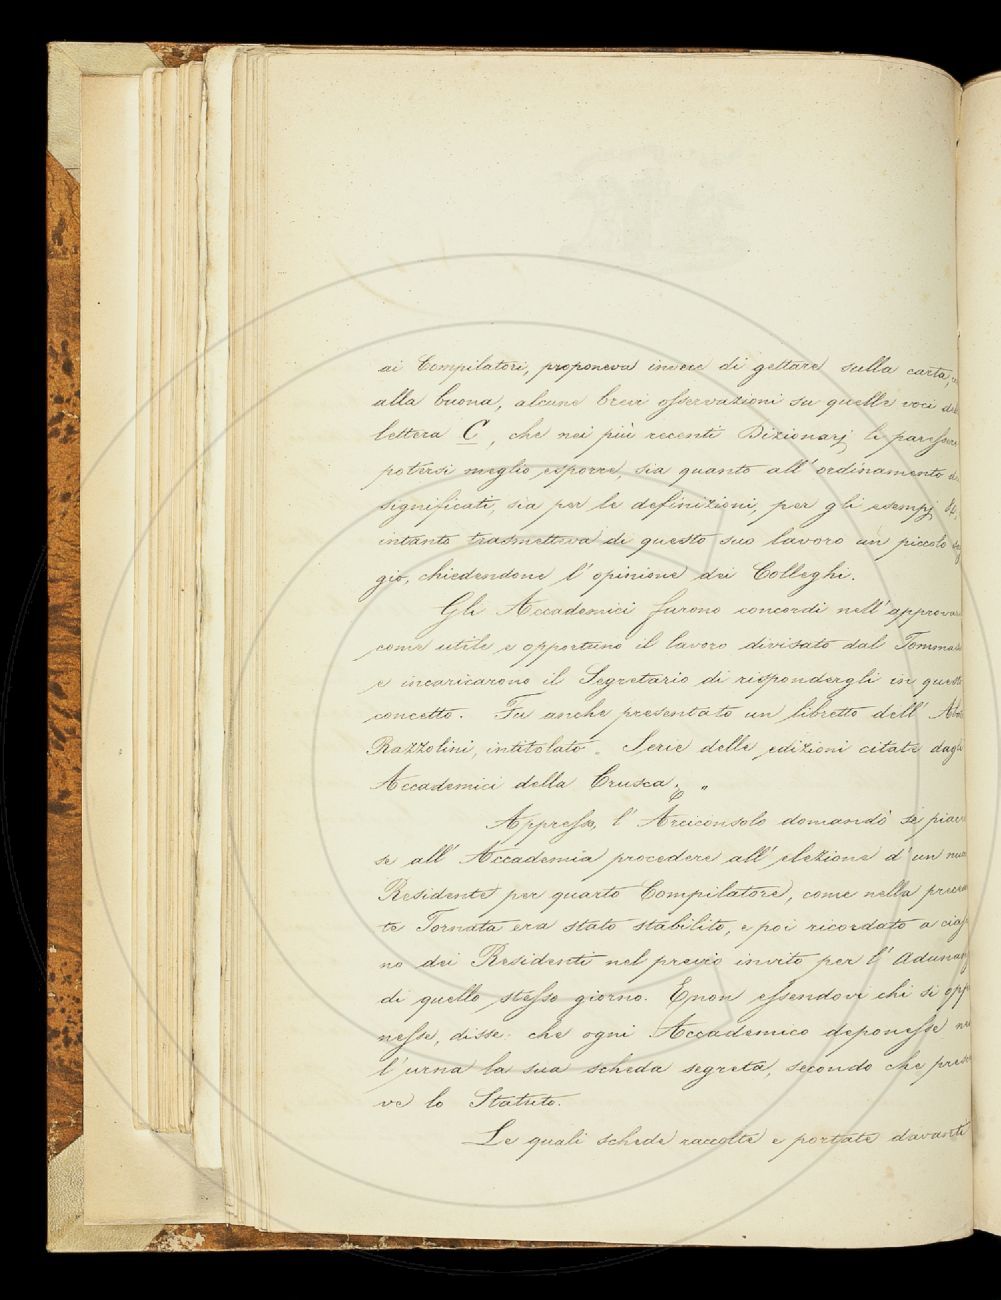 ai Compilatori, proponeva invece di gettare sulla carta,
alla buona, alcune brevi osservazioni su quelle voci del
lettera C, che nei più recenti Dizionarj li paressero
potersi meglio esporre, sia quanto all'ordinamento de
significati, sia per le definizioni, per gli esempj &,
intanto trasmetteva di questo suo lavoro un piccolo sag
gio, chiedendone l'opinione dei Colleghi.
Gli Accademici furono concordi nell'approva
come utile e opportuno il lavoro divisato dal Tommas
e incaricarono il Segretario di rispondergli in questo
concetto. Fu anche presentato un libretto dell'Ab
Razzolini, intitolato „ Serie delle edizioni citate dagli
Accademici della Crusca. „
Appresso, l'Arciconsolo domandò se piace
se all'Accademia procedere all'elezione d'un nuo
Residente per quarto Compilatore, come nella preced
te Tornata era stato stabilito, e poi ricordato a cias
no dei Residenti nel previo invito per l'Adunan
di quello stesso giorno. E non essendovi chi si opp
nesse, disse che ogni Accademico deponesse ne
l'urna la sua scheda segreta, secondo che presc
ve lo Statuto.
Le quali schede raccolte e portate davanti